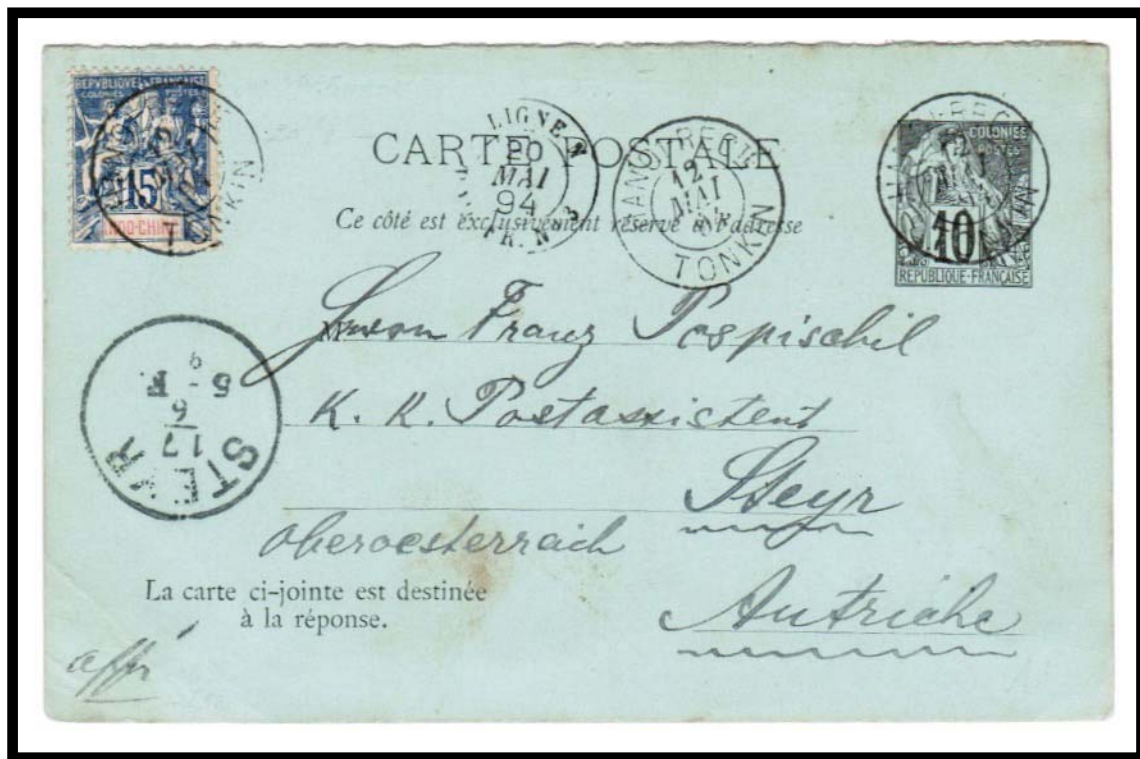 REPVBLIQUE FRANÇAISE
COLONIES POSTES
15
INDO-CHINE
TONKIN
LIGNE N
20
MAI
94
FR. Nº 3
12
MAI
TONKIN
COLONIES
POSTES
10
REPUBLIQUE FRANÇAISE
TONKIN
CARTE POSTALE
Ce côté est exclusivement réservé à l'adresse
M
Herrn Franz Pospischil
K. K. Postassistent
Steyr
Oberoesterreich
Autriche
STEYR
17
6
La carte ci-jointe est destinée
à la réponse.
affr